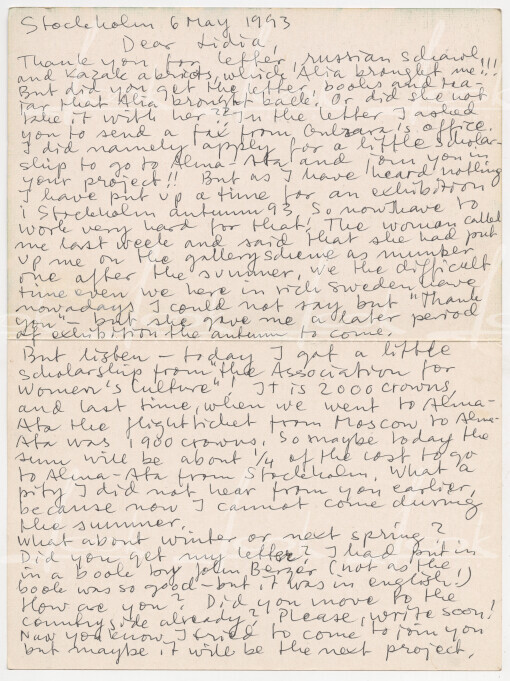 Stockholm 6 May 1993
Dear Lidia!
Thank you for letter, russian schawl
and Kazak abricts, which Alia brought me!!!
But did you get the letter, books and
jar that Alia brought back? Or did she not
take it with her?? In the letter I asked
you to send a fax from office.
I did namely apply for a little scholar-
ship to go to Alma-Ata and join you in
your project!! But as I have heard nothing
I have put up a time for an exhibition
i Stockholm autumn 93. So now I have to
work very hard for that! The woman called
me last week and said that she had put
up me on the galleryscheme as number
one after the summer. We the difficult
time even we here in rich Sweden have
nowadays I could not say but "Thank
you" - but she gave me a later period
of exhibition the autumn to come.
But listen - today I got a little
scholarship from "the Association for
Women's Culture"! It is 2000 crowns,
and last time, when we went to Alma-
Ata the flightticket from Moscow to Alma-
Ata was 1900 crowns. So maybe today the
sum will be about 1/4 of the cost to go
to Alma-Ata from Stockholm. What a
pity I did not hear from you earlier,
because now I cannot come during
the summer.
What about winter or next spring?
Did you get my letter? I had put in
in a book by John Berger (not as the
book was so good - but it was in english!)
How are you? Did you move to the
countryside already? Please, write soon!
Now you know I tried to come to join you
but maybe it will be the next project.